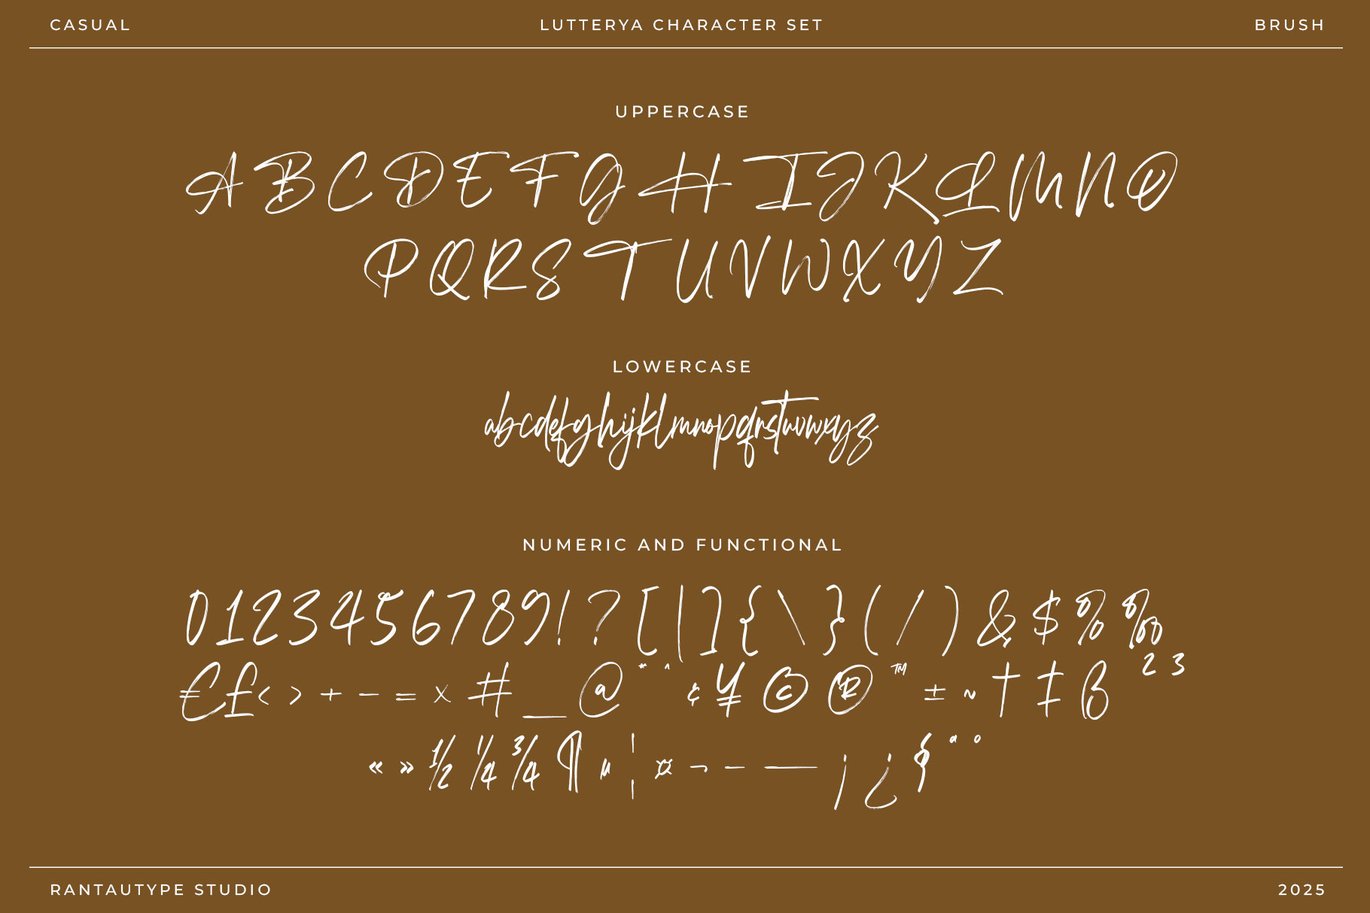 CASUAL LUTTERYA CHARACTER SET BRUSH
UPPERCASE
A B C D E F G H I J K L M N O
P Q R S T U V W X Y Z
LOWERCASE
abcdefghijklmnopqrstuvwxyz
NUMERIC AND FUNCTIONAL
0 1 2 3 4 5 6 7 8 9 ! ? [ | ] { \ } ( / ) & $ % ‰
€ £ < > + - = × # _ @ ¨ ^ ¢ ¥ © ® ™ ± ~ † ‡ ß ² ³
« » ½ ¼ ¾ ¶ µ ¦ ¤ ¬ – — ¡ ¿ § ª º
RANTAUTYPE STUDIO 2025